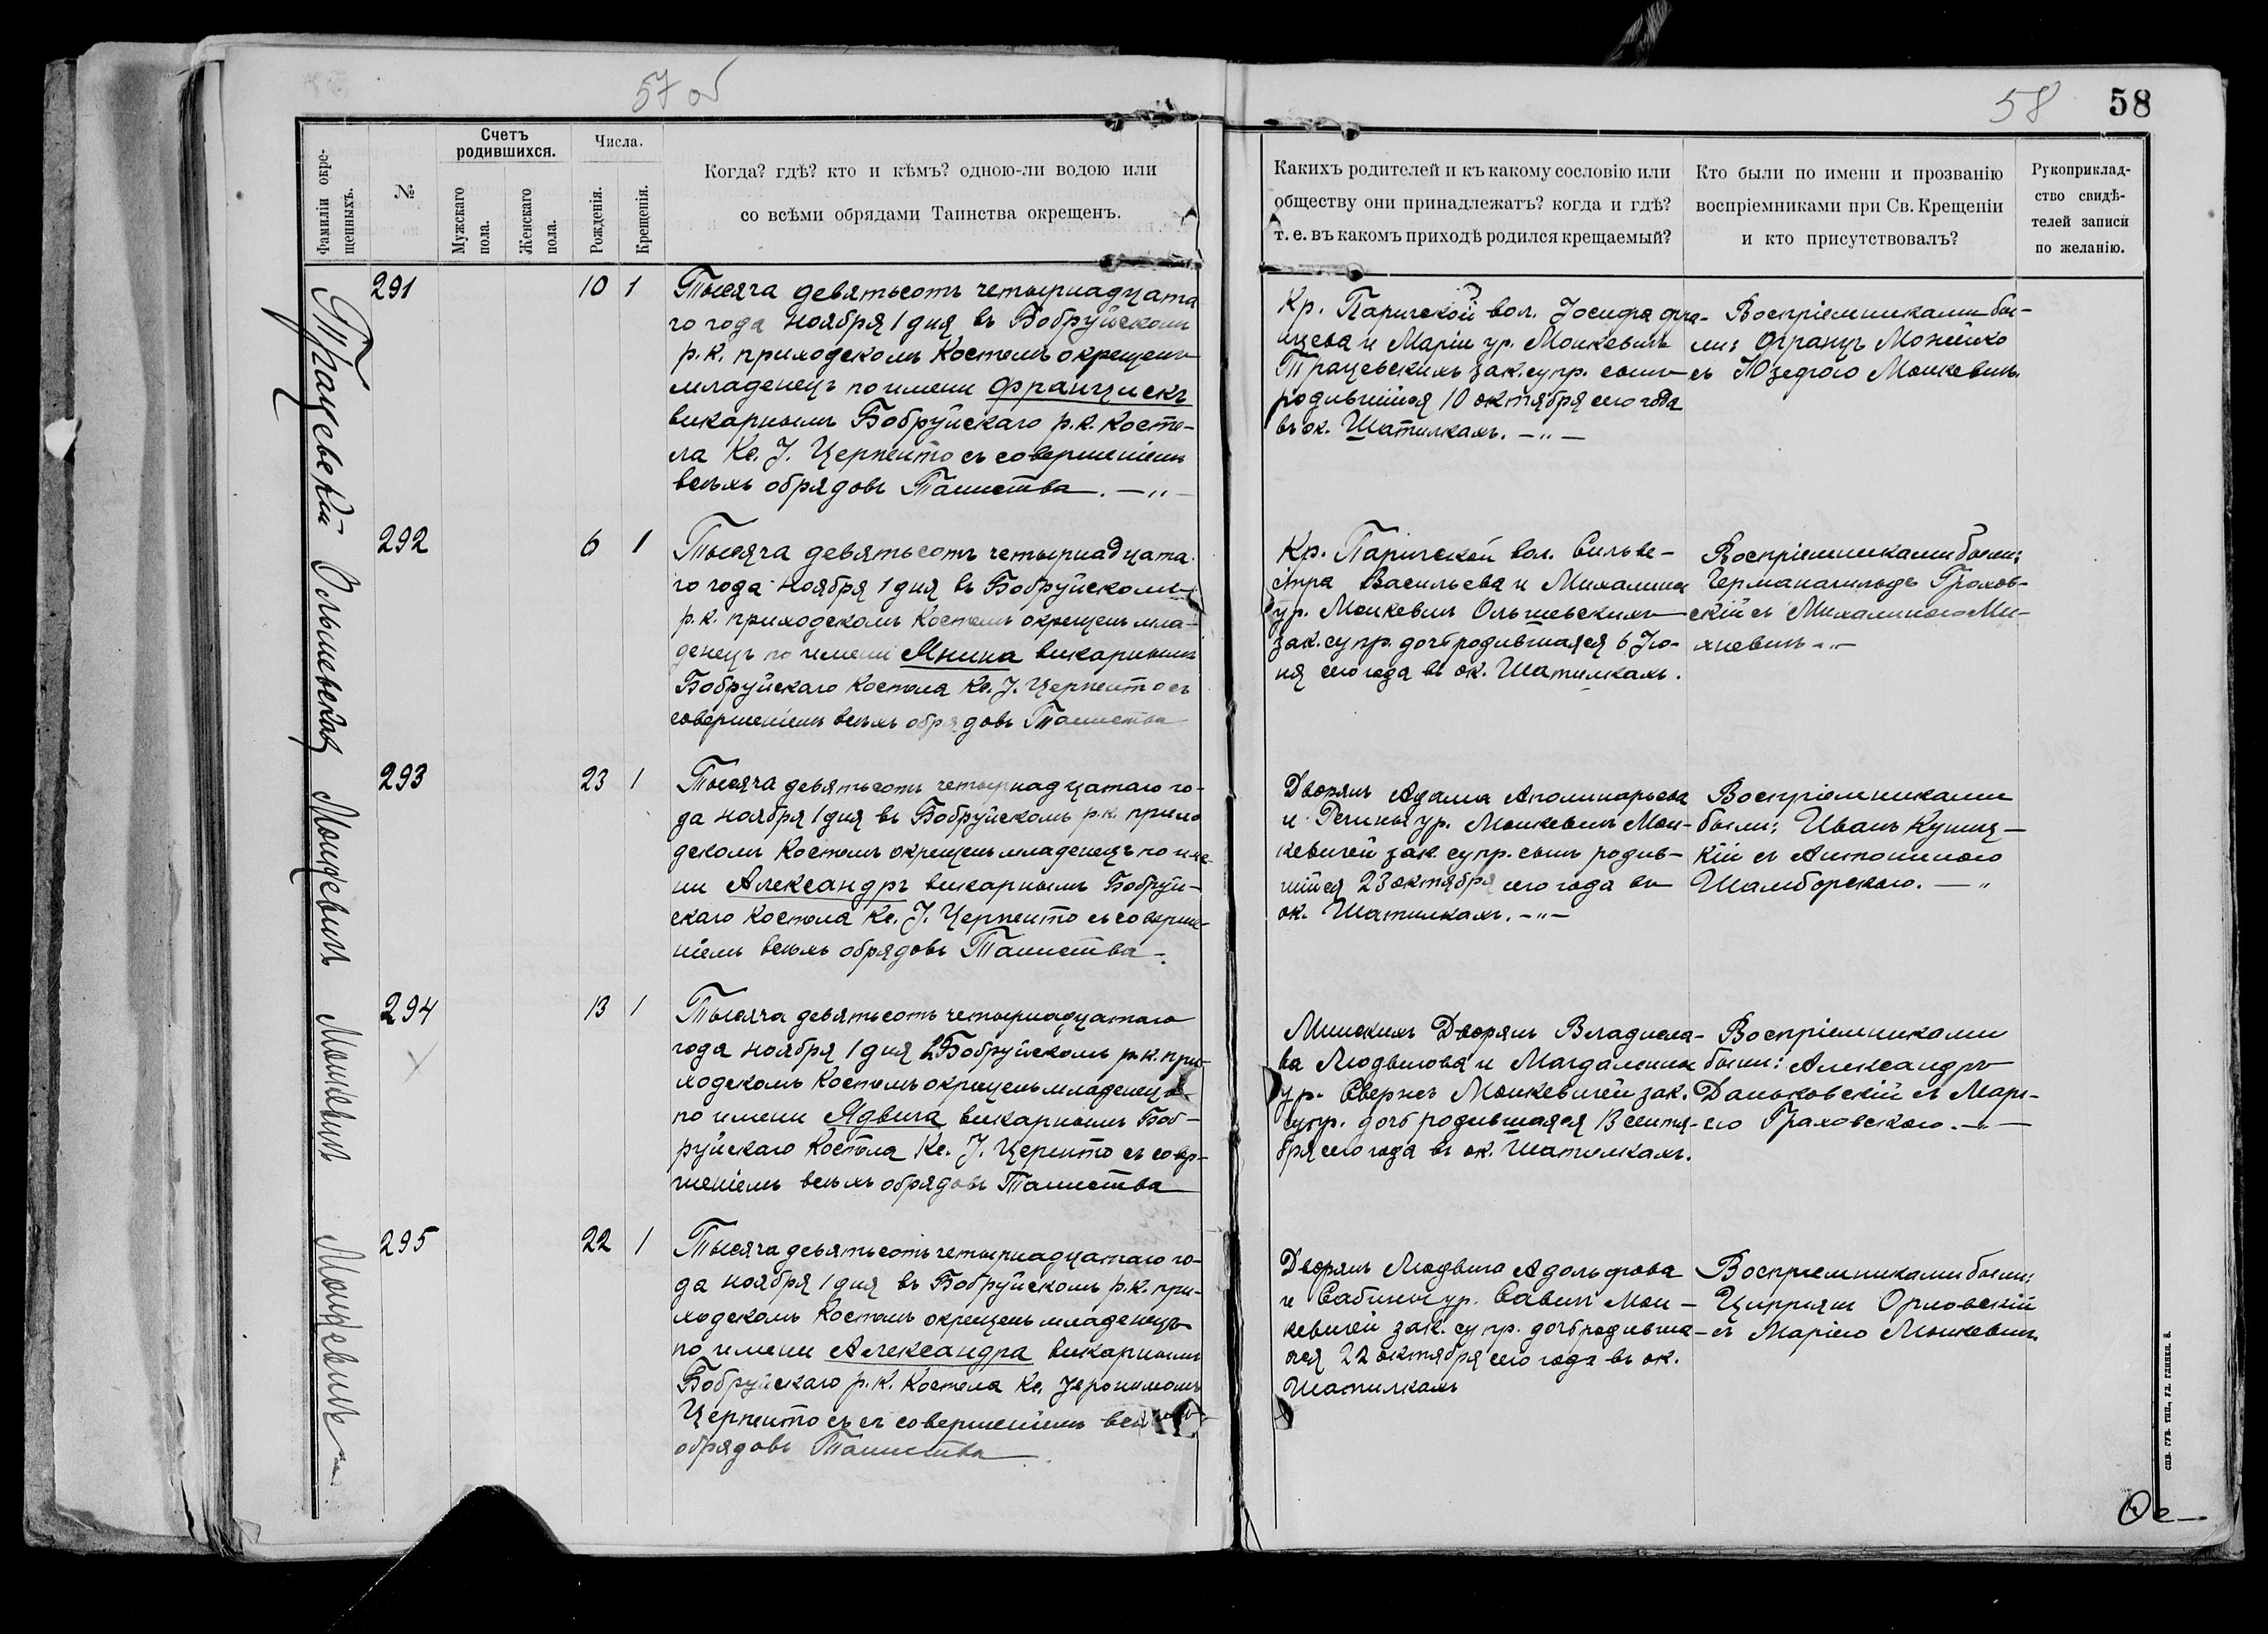 57 об
58
58
Фамиліи окре-
щенныхъ.
№
Счетъ
родившихся.
Мужскаго
пола.
Женскаго
пола.
Числа.
Рожденія.
Крещенія.
Когда? гдѣ? кто и кѣмъ? одною-ли водою или
со всѣми обрядами Таинства окрещенъ.
Какихъ родителей и къ какому сословію или
обществу они принадлежатъ? когда и гдѣ?
т. е. въ какомъ приходѣ родился крещаемый?
Кто были по имени и прозванію
воспріемниками при Св. Крещеніи
и кто присутствовалъ?
Рукоприклад-
ство свидѣ-
телей записи
по желанію.
291
10 1
Тысяча девятьсотъ четырнадцата
го года ноября 1 дня въ Бобруйскомъ
р. к. приходскомъ Костелѣ окрещенъ
младенецъ по имени Францискъ
викарнымъ Бобруйскаго р. к. косте-
ла Кс. І. Церпенто съ совершеніемъ
всѣхъ обрядовъ Таинства. —〃—
Кр. Паричской вол. Іосифа Фра-
нцева и Маріи ур. Моцкевичъ
Трацевскихъ зак. супр. сынъ
родившійся 10 октября сего года
въ ок. Шатилкахъ. —〃—
Воспріемниками бы-
ли: Францъ Можейко
съ Юзефою Моцкевичъ.
Трацевскій
292
6 1
Тысяча девятьсотъ четырнадцата
го года ноября 1 дня въ Бобруйскомъ
р. к. приходскомъ Костелѣ окрещенъ мла-
денецъ по имени Янина викарнымъ
Бобруйскаго Костела Кс. І. Церпенто съ
совершеніемъ всѣхъ обрядовъ Таинства
Кр. Паричской вол. Сильве-
стра Васильева и Михалины
ур. Моцкевичъ Ольшевскихъ
зак. супр. дочь родившаяся 6 Ію-
ня сего года въ ок. Шатилкахъ.
Воспріемниками были:
Грахов-
скій съ Михалиною Ми-
хневичъ —〃—
Ольшевская
293
23 1
Тысяча девятьсотъ четырнадцатаго го-
да ноября 1 дня въ Бобруйскомъ р. к. прихо
дскомъ Костелѣ окрещенъ младенецъ по име-
ни Александръ викарнымъ Бобруй-
скаго Костела Кс. І. Церпенто съ соверше-
ніемъ всѣхъ обрядовъ Таинства.
Дворянъ Адама Аполинарьева
и Регины ур. Моцкевичъ Моц-
кевичей зак. супр. сынъ родив-
шійся 23 октября сего года въ
ок. Шатилкахъ. —〃—
Воспріемниками
были: Иванъ Кушц-
кій съ Антониною
Шамборскою. —〃
Моцкевичъ
294
13 1
Тысяча девятьсотъ четырнадцатаго
года ноября 1 дня въ Бобруйскомъ р. к. при-
ходскомъ Костелѣ окрещенъ младенецъ
по имени Ядвига викарнымъ Боб-
руйскаго Костела Кс. І. Церпенто съ совер-
шеніемъ всѣхъ обрядовъ Таинства
Минскихъ Дворянъ Владисла-
ва Людвигова и Магдалины
ур. Сверчъ Моцкевичей зак.
супр. дочь родившаяся 13 сентя-
бря сего года въ ок. Шатилкахъ.
Воспріемниками
были: Александръ
Даньковскій съ Марі-
ею Граховскою. —〃—
Моцкевичъ
295
22 1
Тысяча девятьсотъ четырнадцатаго го-
да ноября 1 дня въ Бобруйскомъ р. к. при-
ходскомъ Костелѣ окрещенъ младенецъ
по имени Александра викарнымъ
Бобруйскаго р. к. Костела Кс. Іеронимомъ
Церпенто съ съ совершеніемъ всѣхъ
обрядовъ Таинства
Дворянъ Людвига Адольфова
и Сабины ур. Савичъ Моц-
кевичей зак. супр. дочь родивша-
яся 22 октября сего года въ ок.
Шатилкахъ
Воспріемниками были:
Ципріянъ Орловскій
съ Маріею Моцкевичъ
Моцкевичъ
СПБ. ГУБ. ТИП., УЛ. ГЛИНКИ. 8.